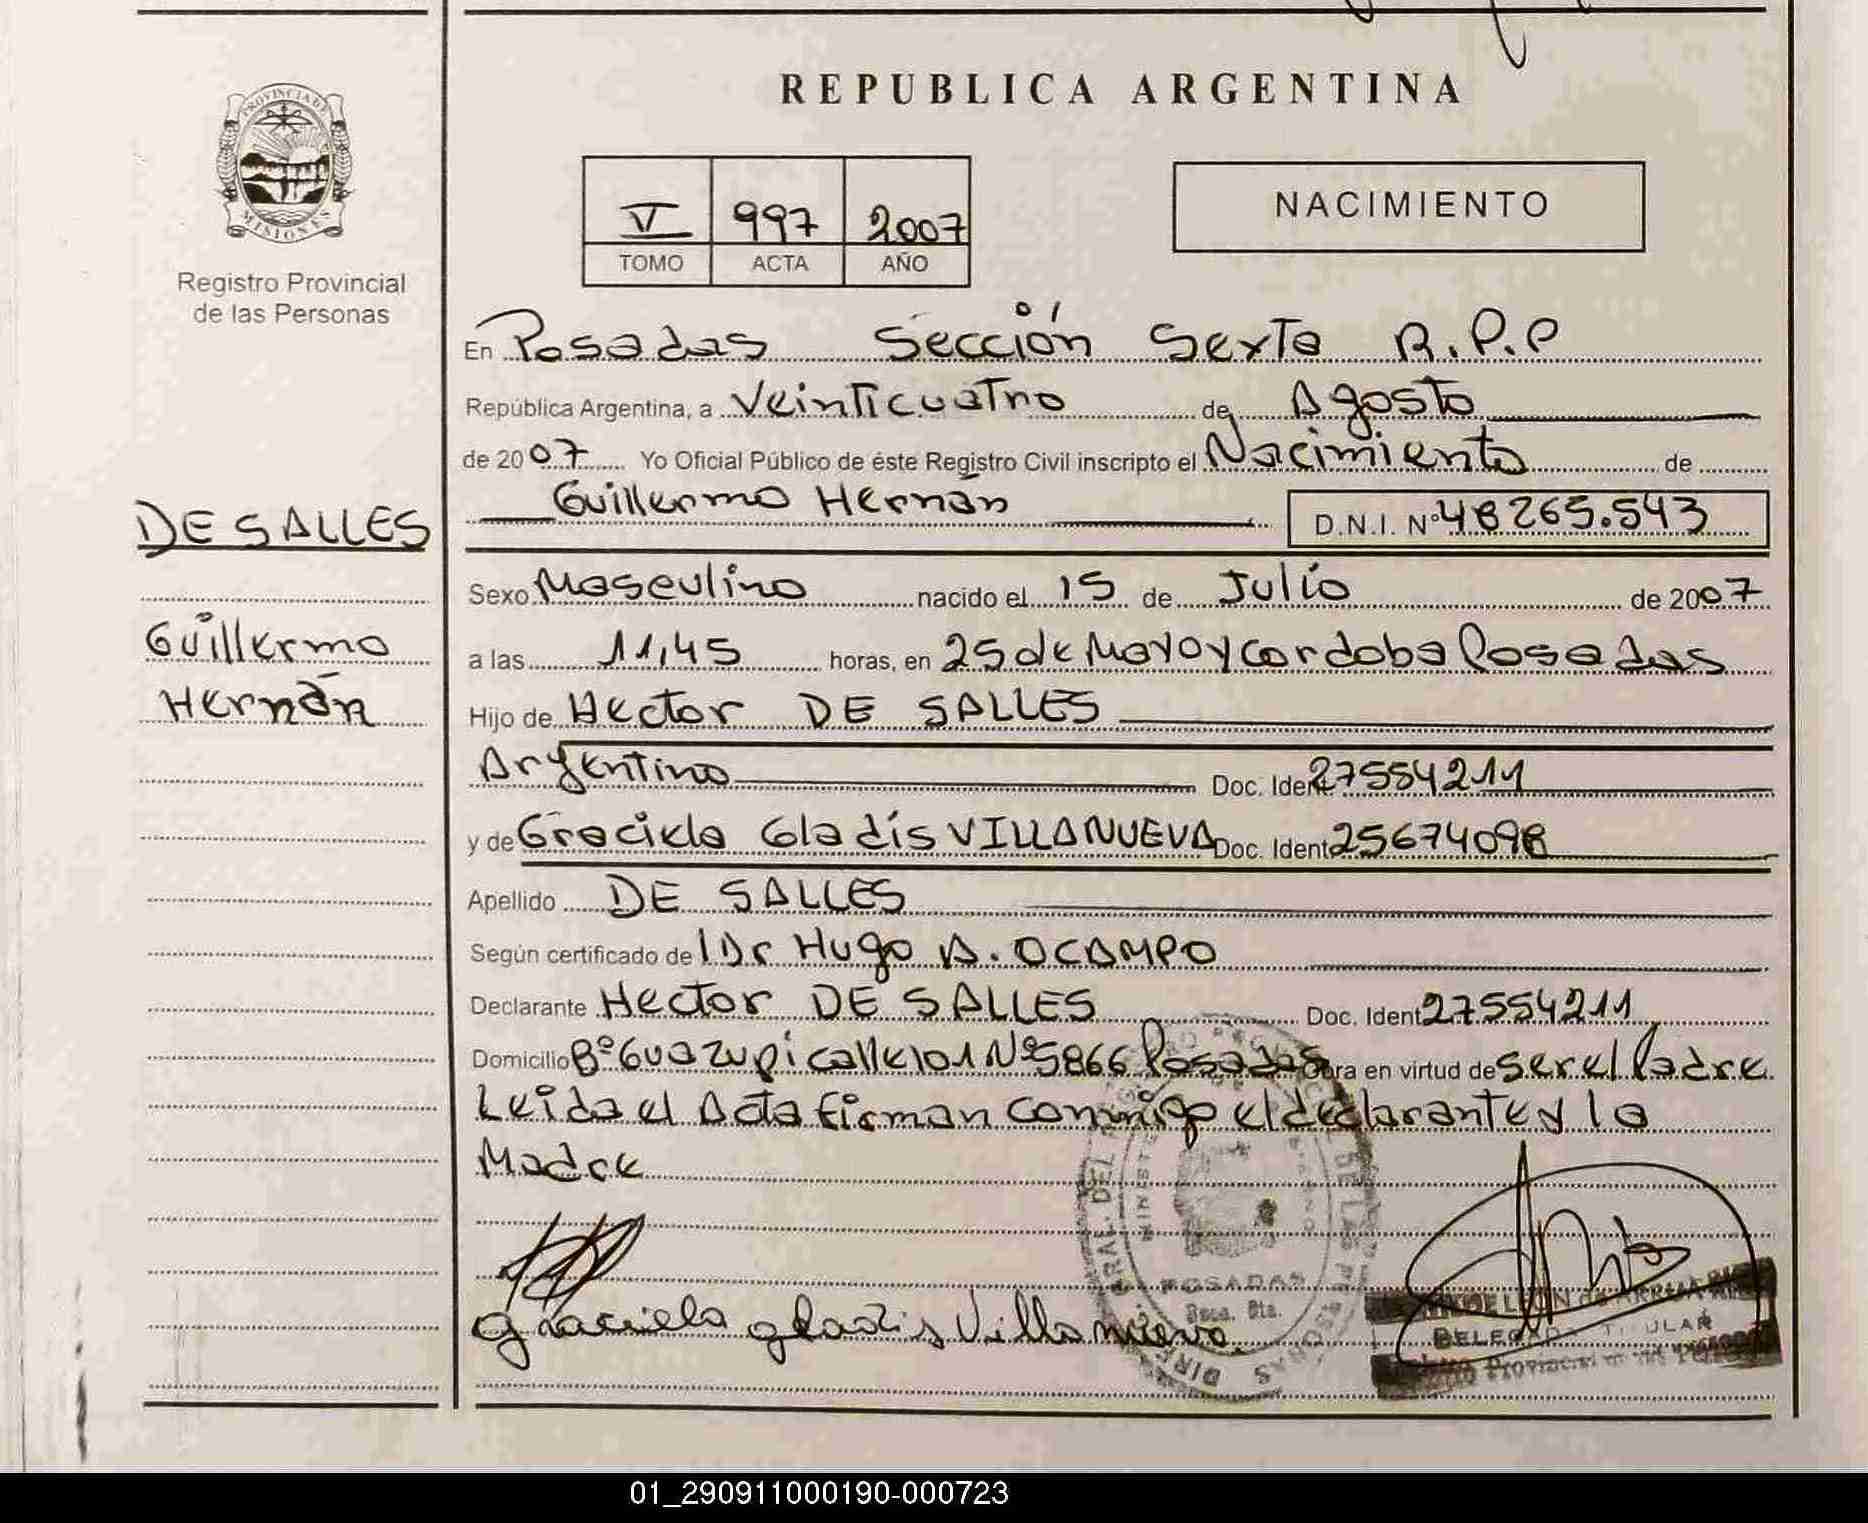 REPUBLICA ARGENTINA
PROVINCIA DE
MISIONES
Registro Provincial
de las Personas
V 997 2007
TOMO ACTA AÑO
NACIMIENTO
En Posadas Sección Sexta R.P.P
República Argentina, a Veinticuatro de Agosto
de 2007 Yo Oficial Público de éste Registro Civil inscripto el Nacimiento de
Guillermo Hernán D.N.I. Nº 48265.543
DE SALLES
Guillermo
Hernán
Sexo Masculino nacido el 15 de Julio de 2007
a las 11,45 horas, en 25 de Mayo y Cordoba Posadas
Hijo de Hector DE SALLES
Argentino Doc. Ident 27554211
y de Graciela Gladis VILLANUEVA Doc. Ident 25674098
Apellido DE SALLES
Según certificado de l Dr Hugo A. OCAMPO
Declarante Hector DE SALLES Doc. Ident 27554211
Domicilio Bº Guazupi calle 101 Nº 5866 Posadas Obra en virtud de ser el Padre
Leida el Acta firman conmigo el declarante y la
Madre
Graciela gladis Villanueva
POSADAS
DELEGADA TITULAR
01_290911000190-000723